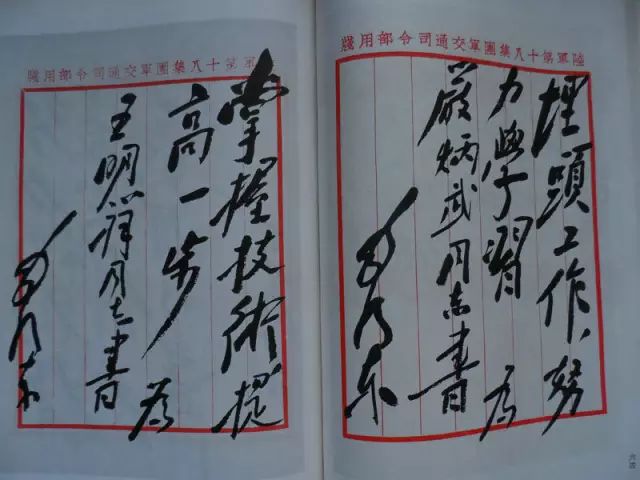 陸軍第十八集團軍交通司令部用牋
埋頭工作，努
力學習 為
嚴炳武同志書
毛澤東
軍第十八集團軍交通司令部用牋
掌握技術提
高一步 為
王明祥同志書
毛澤東